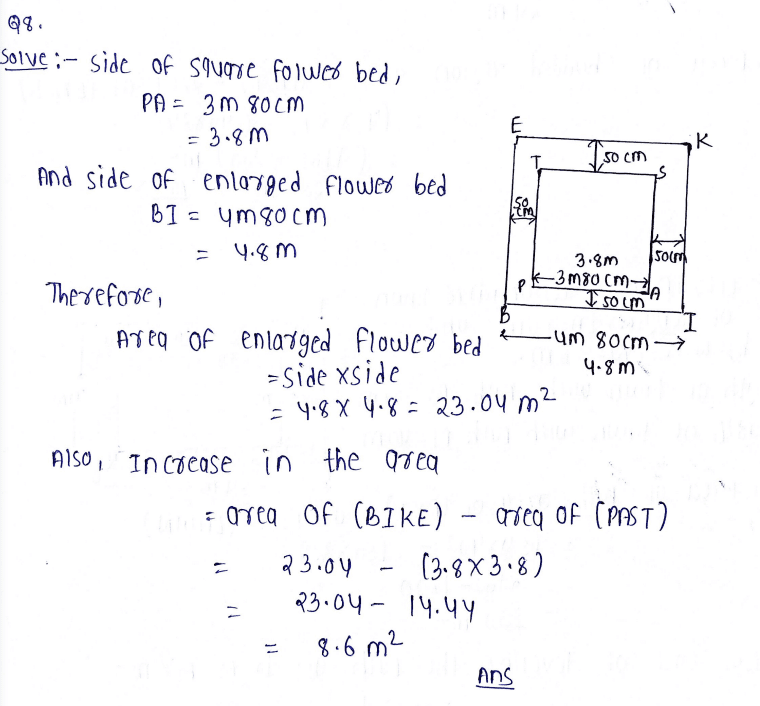 Q8.
Solve :- Side of square folwer bed,
PA = 3m 80cm
= 3.8m
And side of enlarged flower bed
BI = 4m80cm
= 4.8m
Therefore,
Area of enlarged flower bed
= Side x side
= 4.8 x 4.8 = 23.04 m²
Also, Increase in the area
= area of (BIKE) - area of (PAST)
= 23.04 - (3.8x3.8)
= 23.04 - 14.44
= 8.6 m²
Ans
E
K
T
50 cm
S
50 cm
50cm
3.8m
P
3m80 cm
A
50 cm
B
I
4m 80cm
4.8m